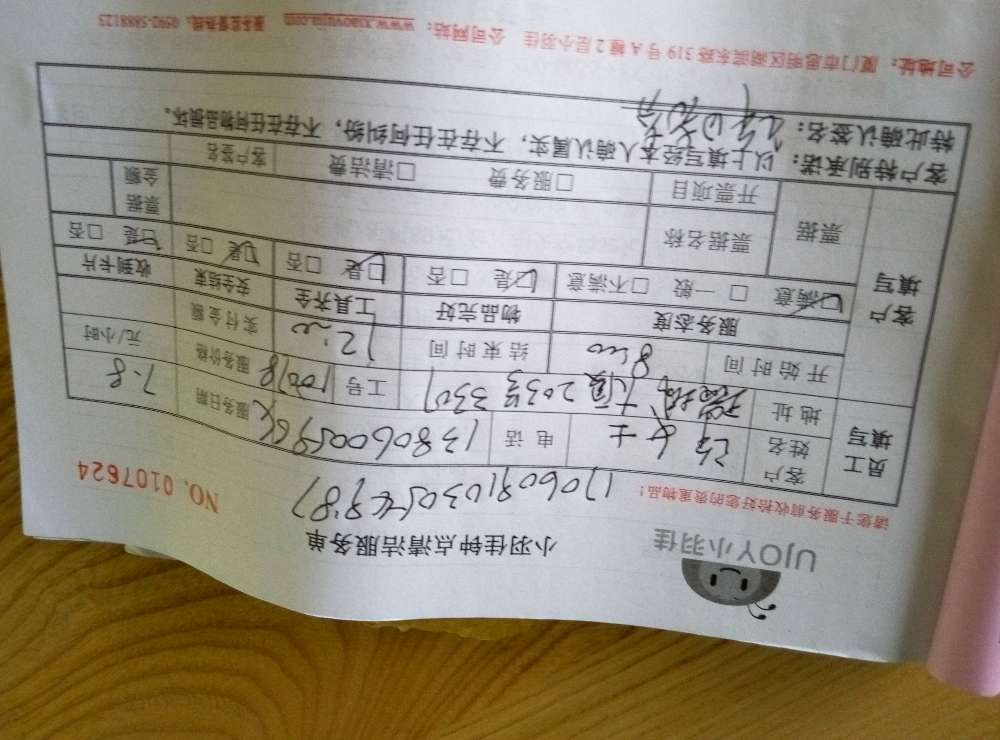 UJOY小羽佳
小羽佳钟点清洁服务单
请您于服务前收拾好您的贵重物品！
NO. 0107624
员工填写
客户姓名 女士 电话 服务日期 7.8
地址 大厦203号3307 工号 10018 服务价格 元/小时
开始时间 8:00 结束时间 12:00 实付金额
客户填写
服务态度 物品完好 工具齐全 安全结束 收到卡片
☑满意 □一般 □不满意 ☑是 □否 ☑是 □否 ☑是 □否 ☑是 □否
票据 票据名称 票据金额
开票项目 □服务费 □清洁费 客户签名
客户特别承诺：以上填写经本人确认属实，不存在任何纠纷，不存在任何物品损坏。
特此确认签名：
公司地址：厦门市思明区湖滨东路319号A幢2层小羽佳 公司网站：www.xiaoyujia.com 服务监督热线：0592-5888123